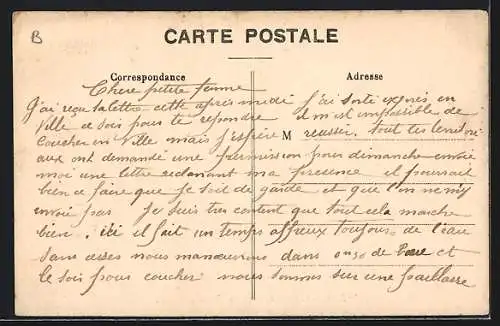 B
CARTE POSTALE
Correspondance
Adresse
Chere petite femme
J'ai reçu ta lettre cette après midi j'ai sorti exprès en
Ville ce soir pour te repondre il m'est impossible de
coucher en Ville mais j'espère M reussir. tout tes
aux ont demandé une permission pour dimanche envoie
moi une lettre reclamant ma presence il pourrait
bien se faire que je soit de garde et que l'on ne m'y
envoie pas Je suis tres content que tout cela marche
bien. ici il fait un temps affreux toujours de l'eau
sans cesse nous manœuvrons dans de boue et
le soir pour coucher nous sommes sur une paillasse